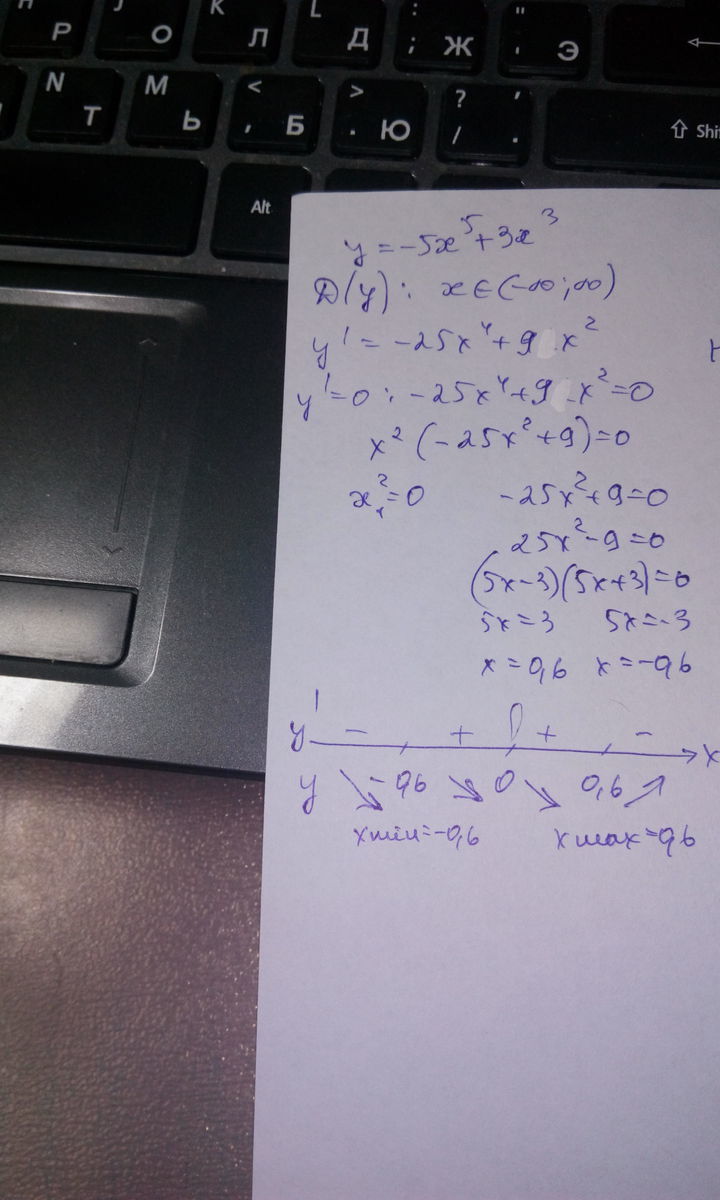 Р О K Л L Д : ; Ж " ' Э
N Т M Ь < , Б > . Ю ? / , . Shi
Alt
y = -5x⁵ + 3x³
D(y): x ∈ (-∞; ∞)
y' = -25x⁴ + 9 x²
y' = 0 : -25x⁴ + 9 x² = 0
x² (-25x² + 9) = 0
x₁² = 0 -25x² + 9 = 0
25x² - 9 = 0
(5x - 3)(5x + 3) = 0
5x = 3 5x = -3
x = 0,6 x = -0,6
y' - + 0 + - x
y ↘ -0,6 ↘ 0 ↘ 0,6 ↗
xmin = -0,6 xmax = 0,6